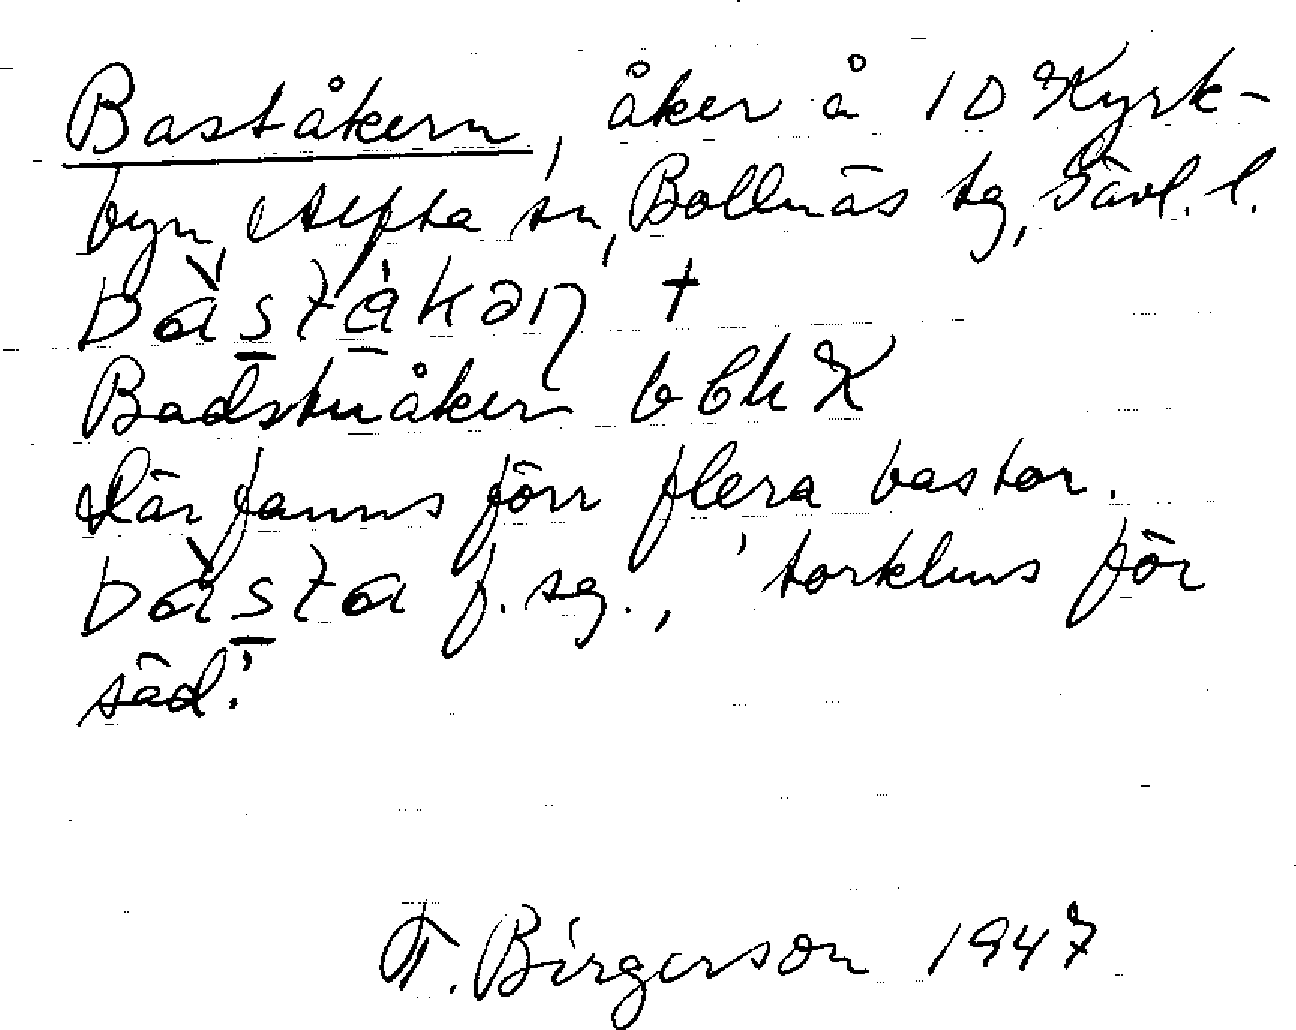 Baståkern, åker å 10 Kyrk-
byn, Alfta sn, Bollnäs tg, Gävl. l.
bàstàkəṇ +
Badstuåkern
Där fanns förr flera bastor.
bàsta f. sg., 'torkhus för
säd'.
F. Birgerson 1947